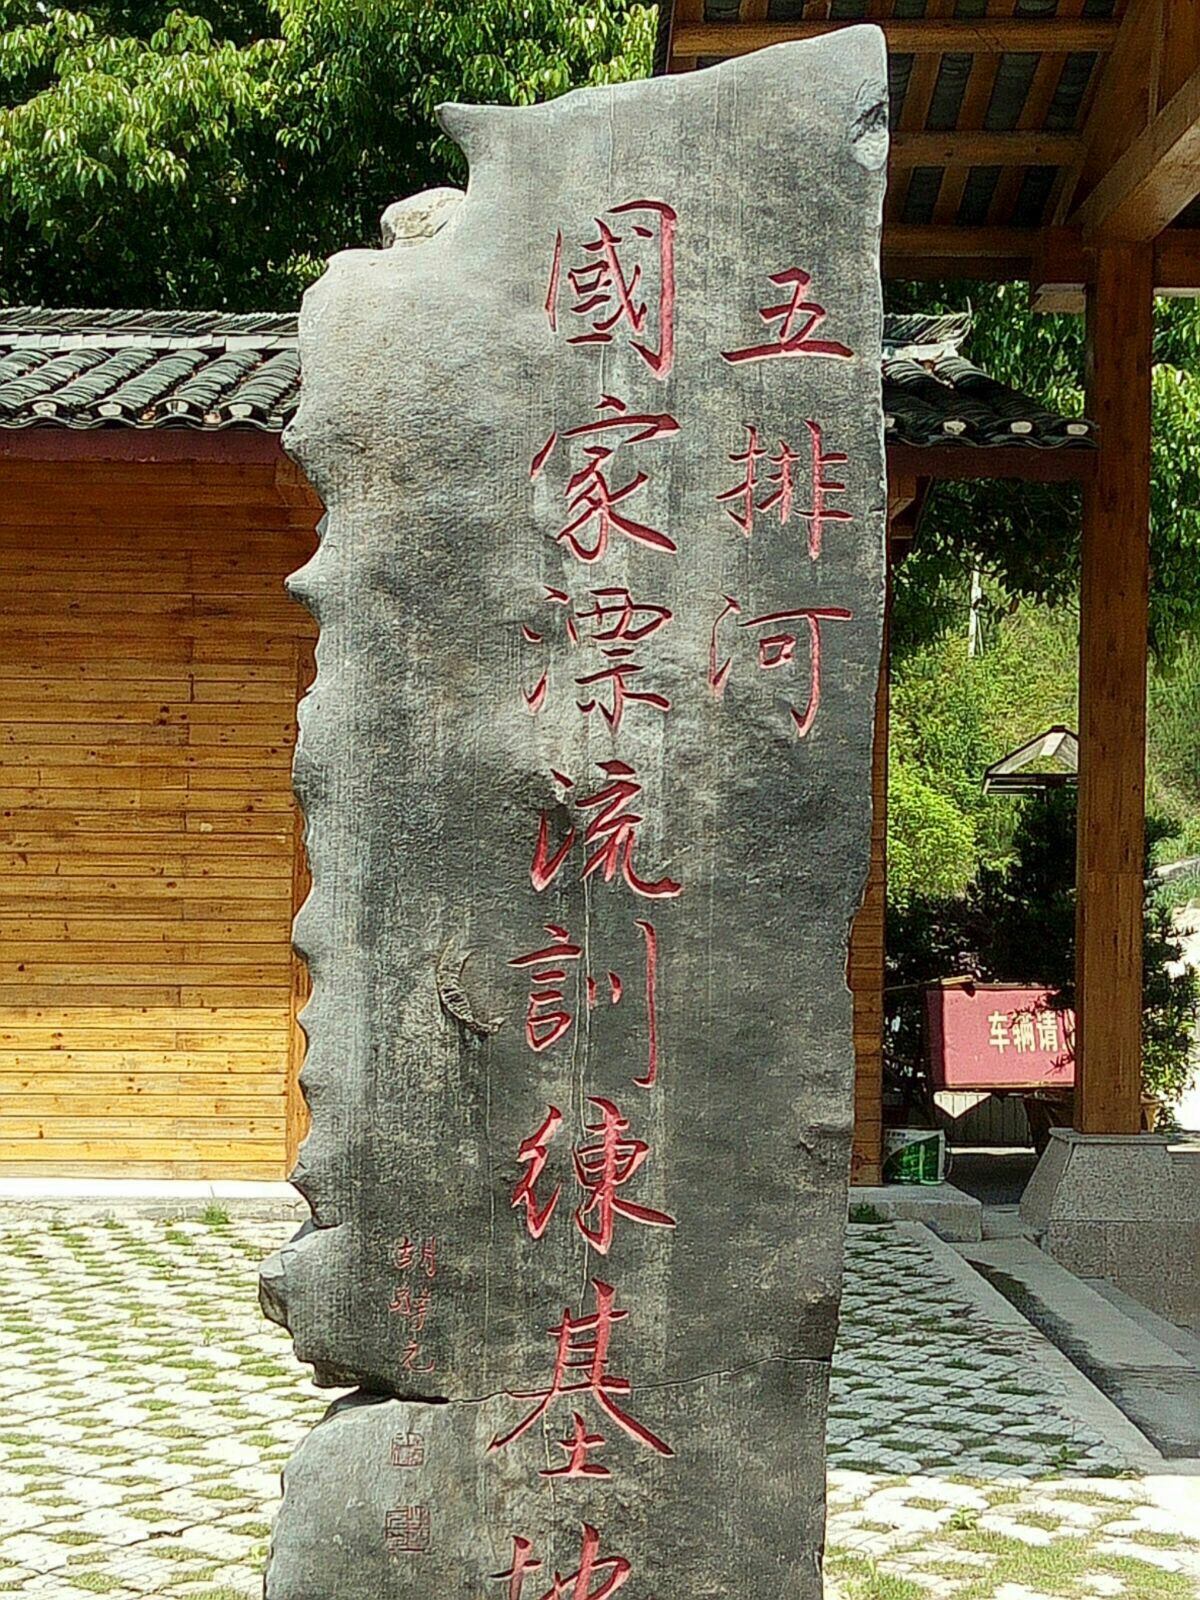 五排河
國家漂流訓練基地
车辆请